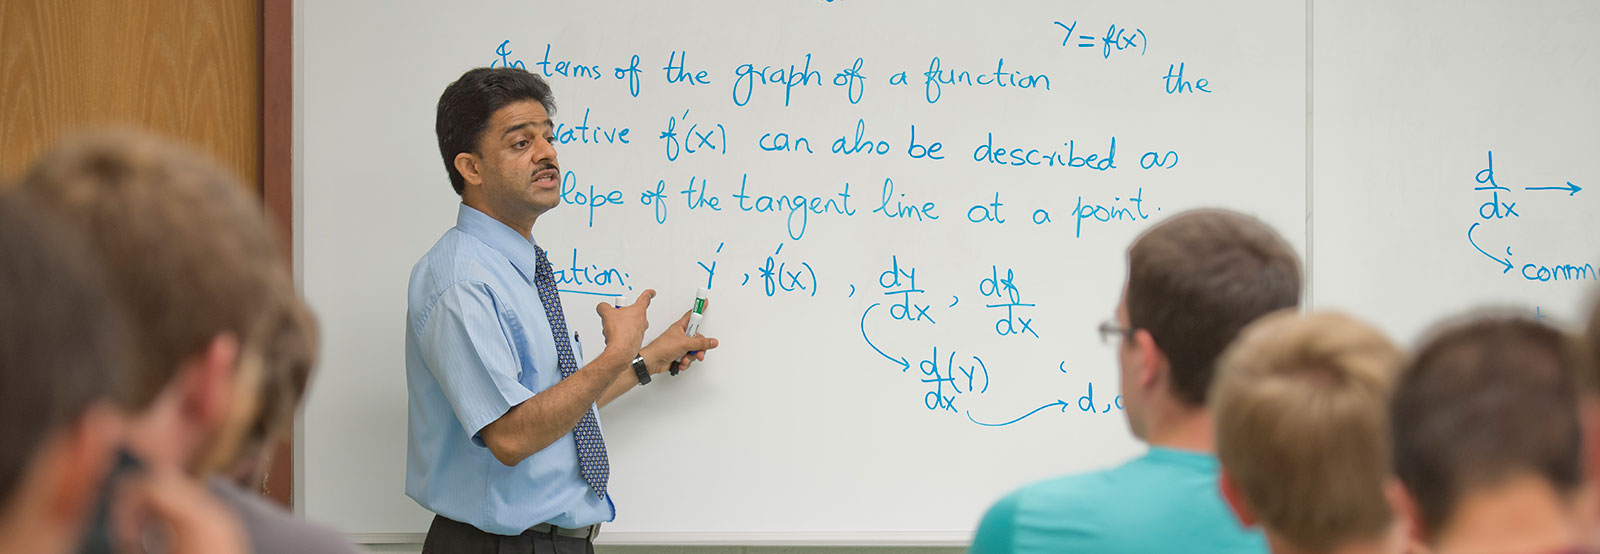 In terms of the graph of a function Y = f(x) the
vative f'(x) can also be described as
lope of the tangent line at a point.
ation: Y', f'(x), dy/dx, df/dx
d/dx (Y) → d,
d/dx →
comm